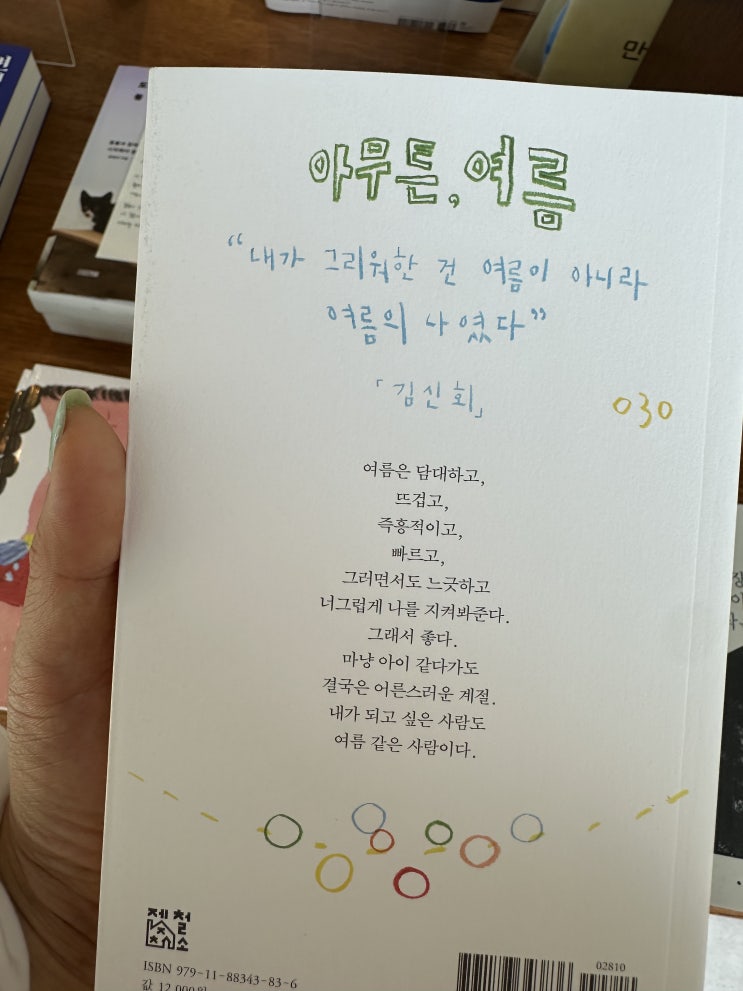 만
아무튼, 여름
“내가 그리워한 건 여름이 아니라
여름의 나였다”
「김신회」
030
여름은 담대하고,
뜨겁고,
즉흥적이고,
빠르고,
그러면서도 느긋하고
너그럽게 나를 지켜봐준다.
그래서 좋다.
마냥 아이 같다가도
결국은 어른스러운 계절.
내가 되고 싶은 사람도
여름 같은 사람이다.
제철소
ISBN 979-11-88343-83-6
값 12,000원
02810